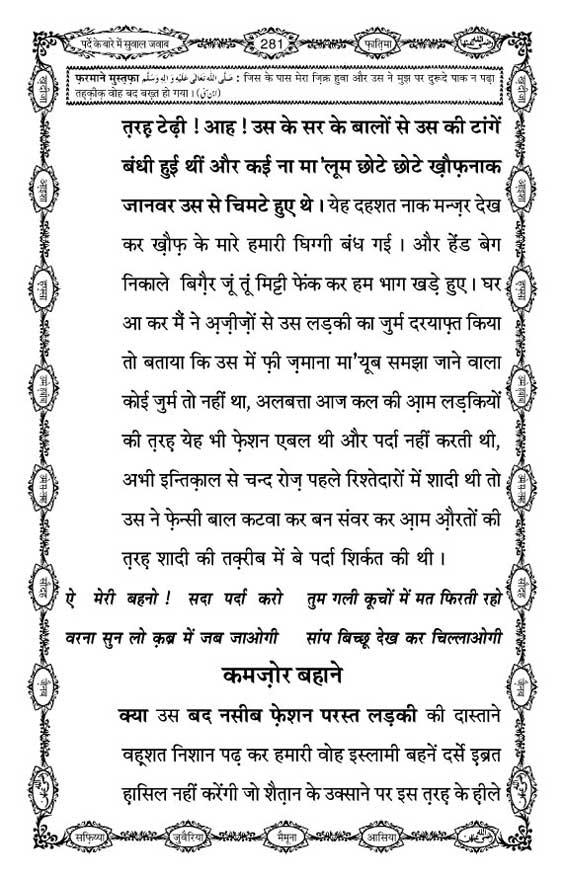 पर्दे के बारे में सुवाल जवाब
281
फ़ातिमा
फ़रमाने मुस्तफ़ा صَلَّى اللهُ تَعَالٰى عَلَيْهِ وَاٰلِهٖ وَسَلَّم : जिस के पास मेरा ज़िक्र हुवा और उस ने मुझ पर दुरूदे पाक न पढ़ा
तहक़ीक़ वोह बद बख़्त हो गया ।
त़रह़ टेढ़ी ! आह ! उस के सर के बालों से उस की टांगें
बंधी हुई थीं और कई ना मा'लूम छोटे छोटे ख़ौफ़नाक
जानवर उस से चिमटे हुए थे । येह दहशत नाक मन्ज़र देख
कर ख़ौफ़ के मारे हमारी घिग्गी बंध गई । और हेंड बेग
निकाले बिग़ैर जूं तूं मिट्टी फेंक कर हम भाग खड़े हुए । घर
आ कर मैं ने अ़ज़ीज़ों से उस लड़की का जुर्म दरयाफ़्त किया
तो बताया कि उस में फ़ी ज़माना मा'यूब समझा जाने वाला
कोई जुर्म तो नहीं था, अलबत्ता आज कल की आ़म लड़कियों
की त़रह़ येह भी फे़शन एबल थी और पर्दा नहीं करती थी,
अभी इन्तिक़ाल से चन्द रोज़ पहले रिश्तेदारों में शादी थी तो
उस ने फे़न्सी बाल कटवा कर बन संवर कर आ़म औ़रतों की
त़रह़ शादी की तक़्रीब में बे पर्दा शिर्कत की थी ।
ऐ मेरी बहनो ! सदा पर्दा करो तुम गली कूचों में मत फिरती रहो
वरना सुन लो क़ब्र में जब जाओगी सांप बिच्छू देख कर चिल्लाओगी
कमज़ोर बहाने
क्या उस बद नसीब फे़शन परस्त लड़की की दास्ताने
वह़्शत निशान पढ़ कर हमारी वोह इस्लामी बहनें दर्से इ़ब्रत
ह़ासिल नहीं करेंगी जो शैत़ान के उक्साने पर इस त़रह़ के ह़ीले
सफ़िय्या
जुवैरिया
मैमूना
आसिया